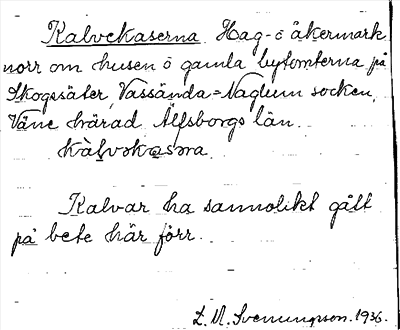 Kalvekaserna. Hag- o åkermark
norr om husen o gamla bytomterna på
Skogssäter, Vassända-Naglum socken,
Väne härad Älfsborgs län.
Kalvar ha sannolikt gått
på bete här förr.
1936.